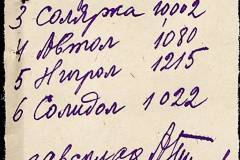 3 Солярка 10002
4 Автол 1080
5 Нигрол 1215
6 Солидол 1022
завсклад